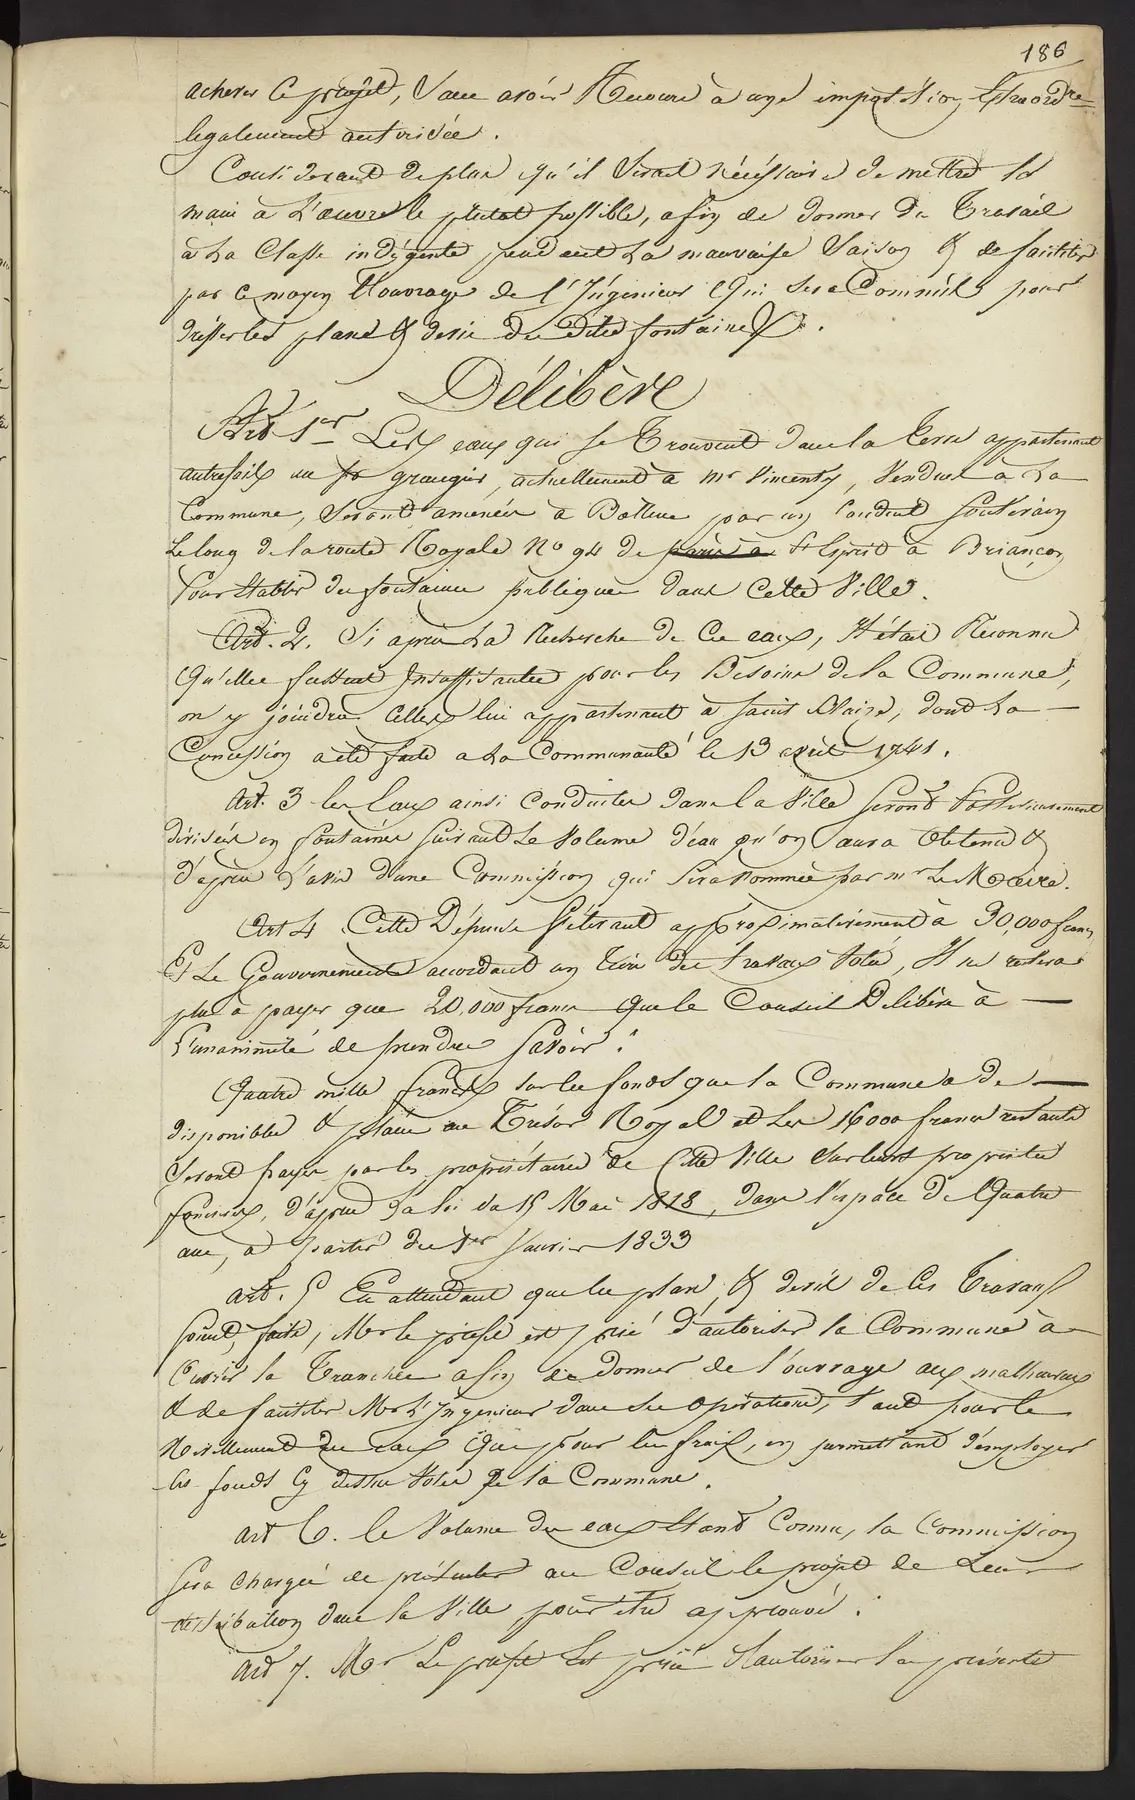 186
achever ce projet, sans avoir Recours à une imposition Extraordre
legalement autorisée.
Considerant de plus qu'il serait nécéssaire de mettre la
main à L'œuvre le plutot possible, afin de donner du Travail
à La Classe indigente pendant La mauvaise Saison & de faciliter
par ce moyen l'ouvrage de l'Ingénieur Qui sera Commis pour
drésser les plans & devis des Dites fontaines.
Délibère
Art 1er Les eaux qui se Trouvent dans la Terre appartenant
autrefois au sr grangier, actuellement à mr Vincenty, Vendues à La
Commune, seront amenées à Bollene par un Conduit souterrain
Le long de la route Royale No 94 de paris à St Esprit à Briançon
Pour Etablir des fontaines publiques dans Cette Ville.
Art. 2. Si après La Recherche de Ces eaux, Il était Reconnu
Qu'elles fussent Insuffisantes pour les Besoins de la Commune,
on y joindra Celles lui appartenant à saint Blaise, dont La
Concession a été faite a La Communauté le 13 avril 1741.
Art. 3 les Eaux ainsi Conduites dans la Ville seront Postérieurement
divisées en fontaines suivant Le Volume d'eau qu'on aura Obtenu &
d'après L'avis d'une Commission qui sera Nommée par mr Le Maire.
Art 4 Cette Dépense s'élevant approximativement à 30,000 francs
Et Le Gouvernement accordant un Tiers des Travaux Votés, Il ne restera
plus à payer que 20,000 francs Que le Conseil Delibère à
L'unanimité de prendre savoir :
Quatre mille francs sur les fonds que la Commune a de
disponibles & placés au Trésor Royal et Les 16000 francs restants
seront payés par les propriétaires de Cette Ville sur leurs propriétés
foncieres, d'après La loi du 15 Mai 1818, dans l'espace de Quatre
ans, à partir du 1er Janvier 1833
art. 5 En attendant que les plans & devis de Ces Travaux
soient faits, Mr le préfet est prié d'autoriser la Commune à
Ouvrir la Tranchée afin de donner de l'ouvrage aux malheureux
& de faciliter Mr L'Ingenieur dans ses Opérations, Tant pour le
Nivellement des eaux Que pour les frais, en permettant d'employer
les fonds Cy dessus Votés de la Commune.
art 6. le Volume des eaux Etant Connu, la Commission
sera chargée de présenter au Conseil le projet de Leur
distribution dans la Ville pour être approuvé.
Art 7. Mr Le prefet Est prié d'autoriser la présente